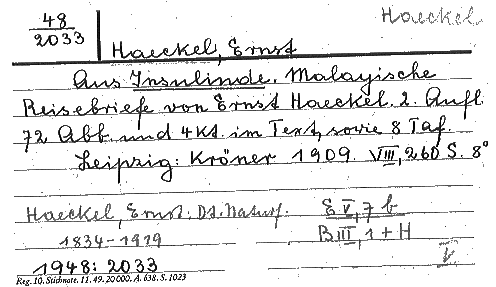 48
2033
Haeckel.
Haeckel, Ernst
Aus Insulinde. Malayische
Reisebriefe von Ernst Haeckel. 2. Aufl.
72 Abb. und 4 Kt. im Text, sowie 8 Taf.
Leipzig: Kröner 1909. VIII, 260 S. 8°
Haeckel, Ernst: Dt. Naturf. E V, 7 b
1834-1919 B III, 1 + H
V.
1948: 2033
Reg. 10. Stichnote. 11. 49. 20000. A. 638. S. 1023